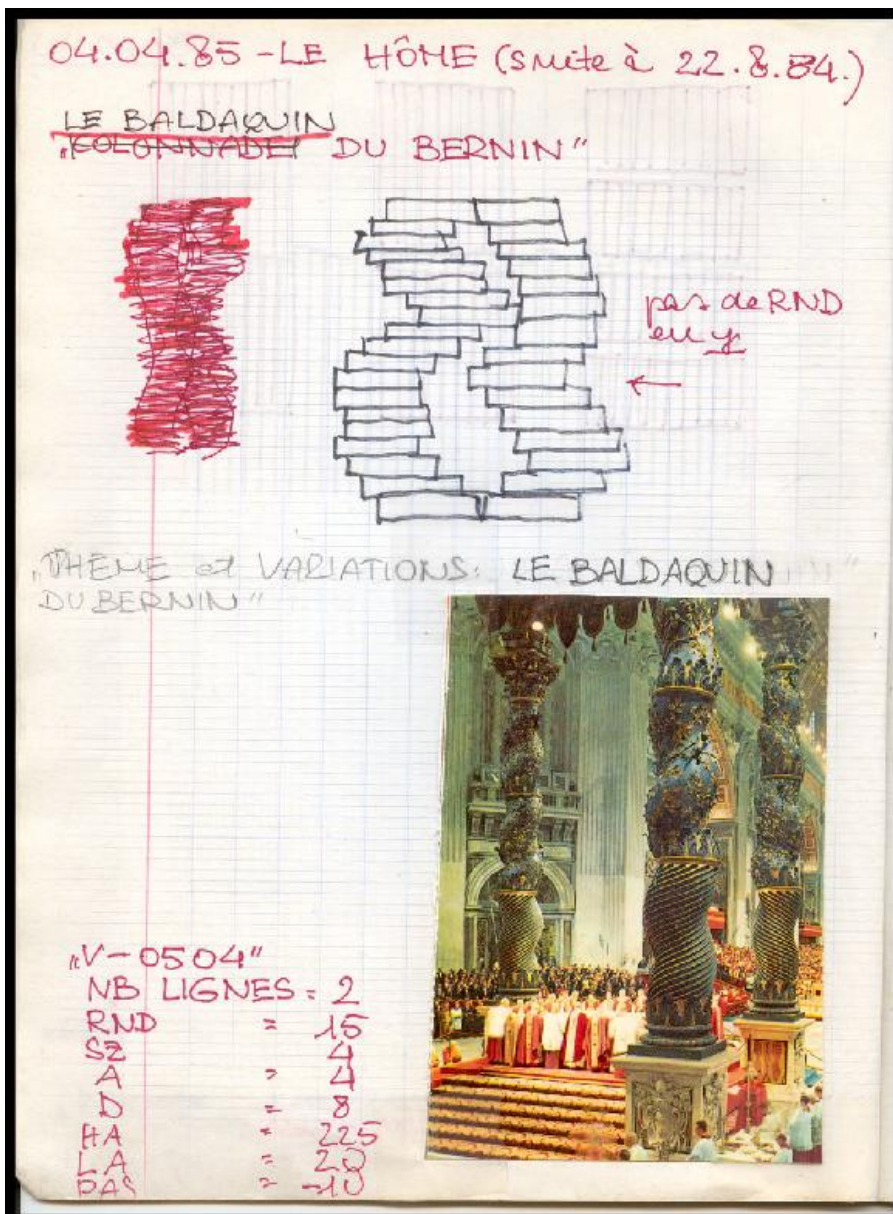 04.04.85 - LE HÔME (suite à 22.8.84.)
LE BALDAQUIN
"COLONNADE" DU BERNIN"
pas de RND
en y
"THÈME et VARIATIONS: LE BALDAQUIN
DU BERNIN"
"V-0504"
NB LIGNES = 2
RND = 15
SZ 4
A = 4
D = 8
HA = 225
LA = 20
PAS = -10